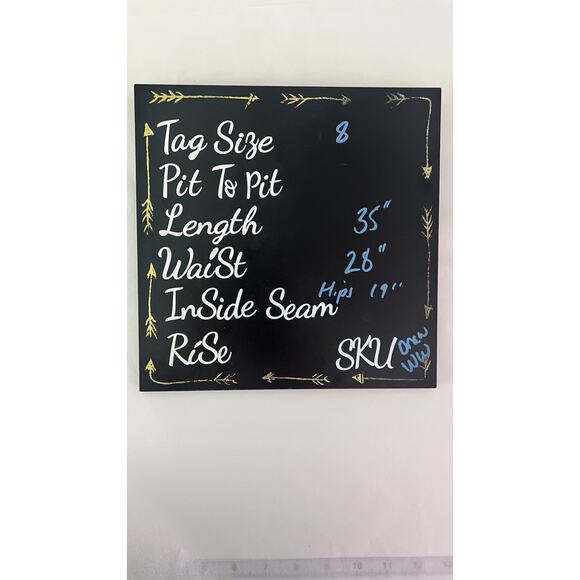 Tag Size 8
Pit To Pit
Length 35"
WaiSt 28"
Hips 19"
InSide Seam
RiSe SKU Drew
WW
8 9 10 11 12